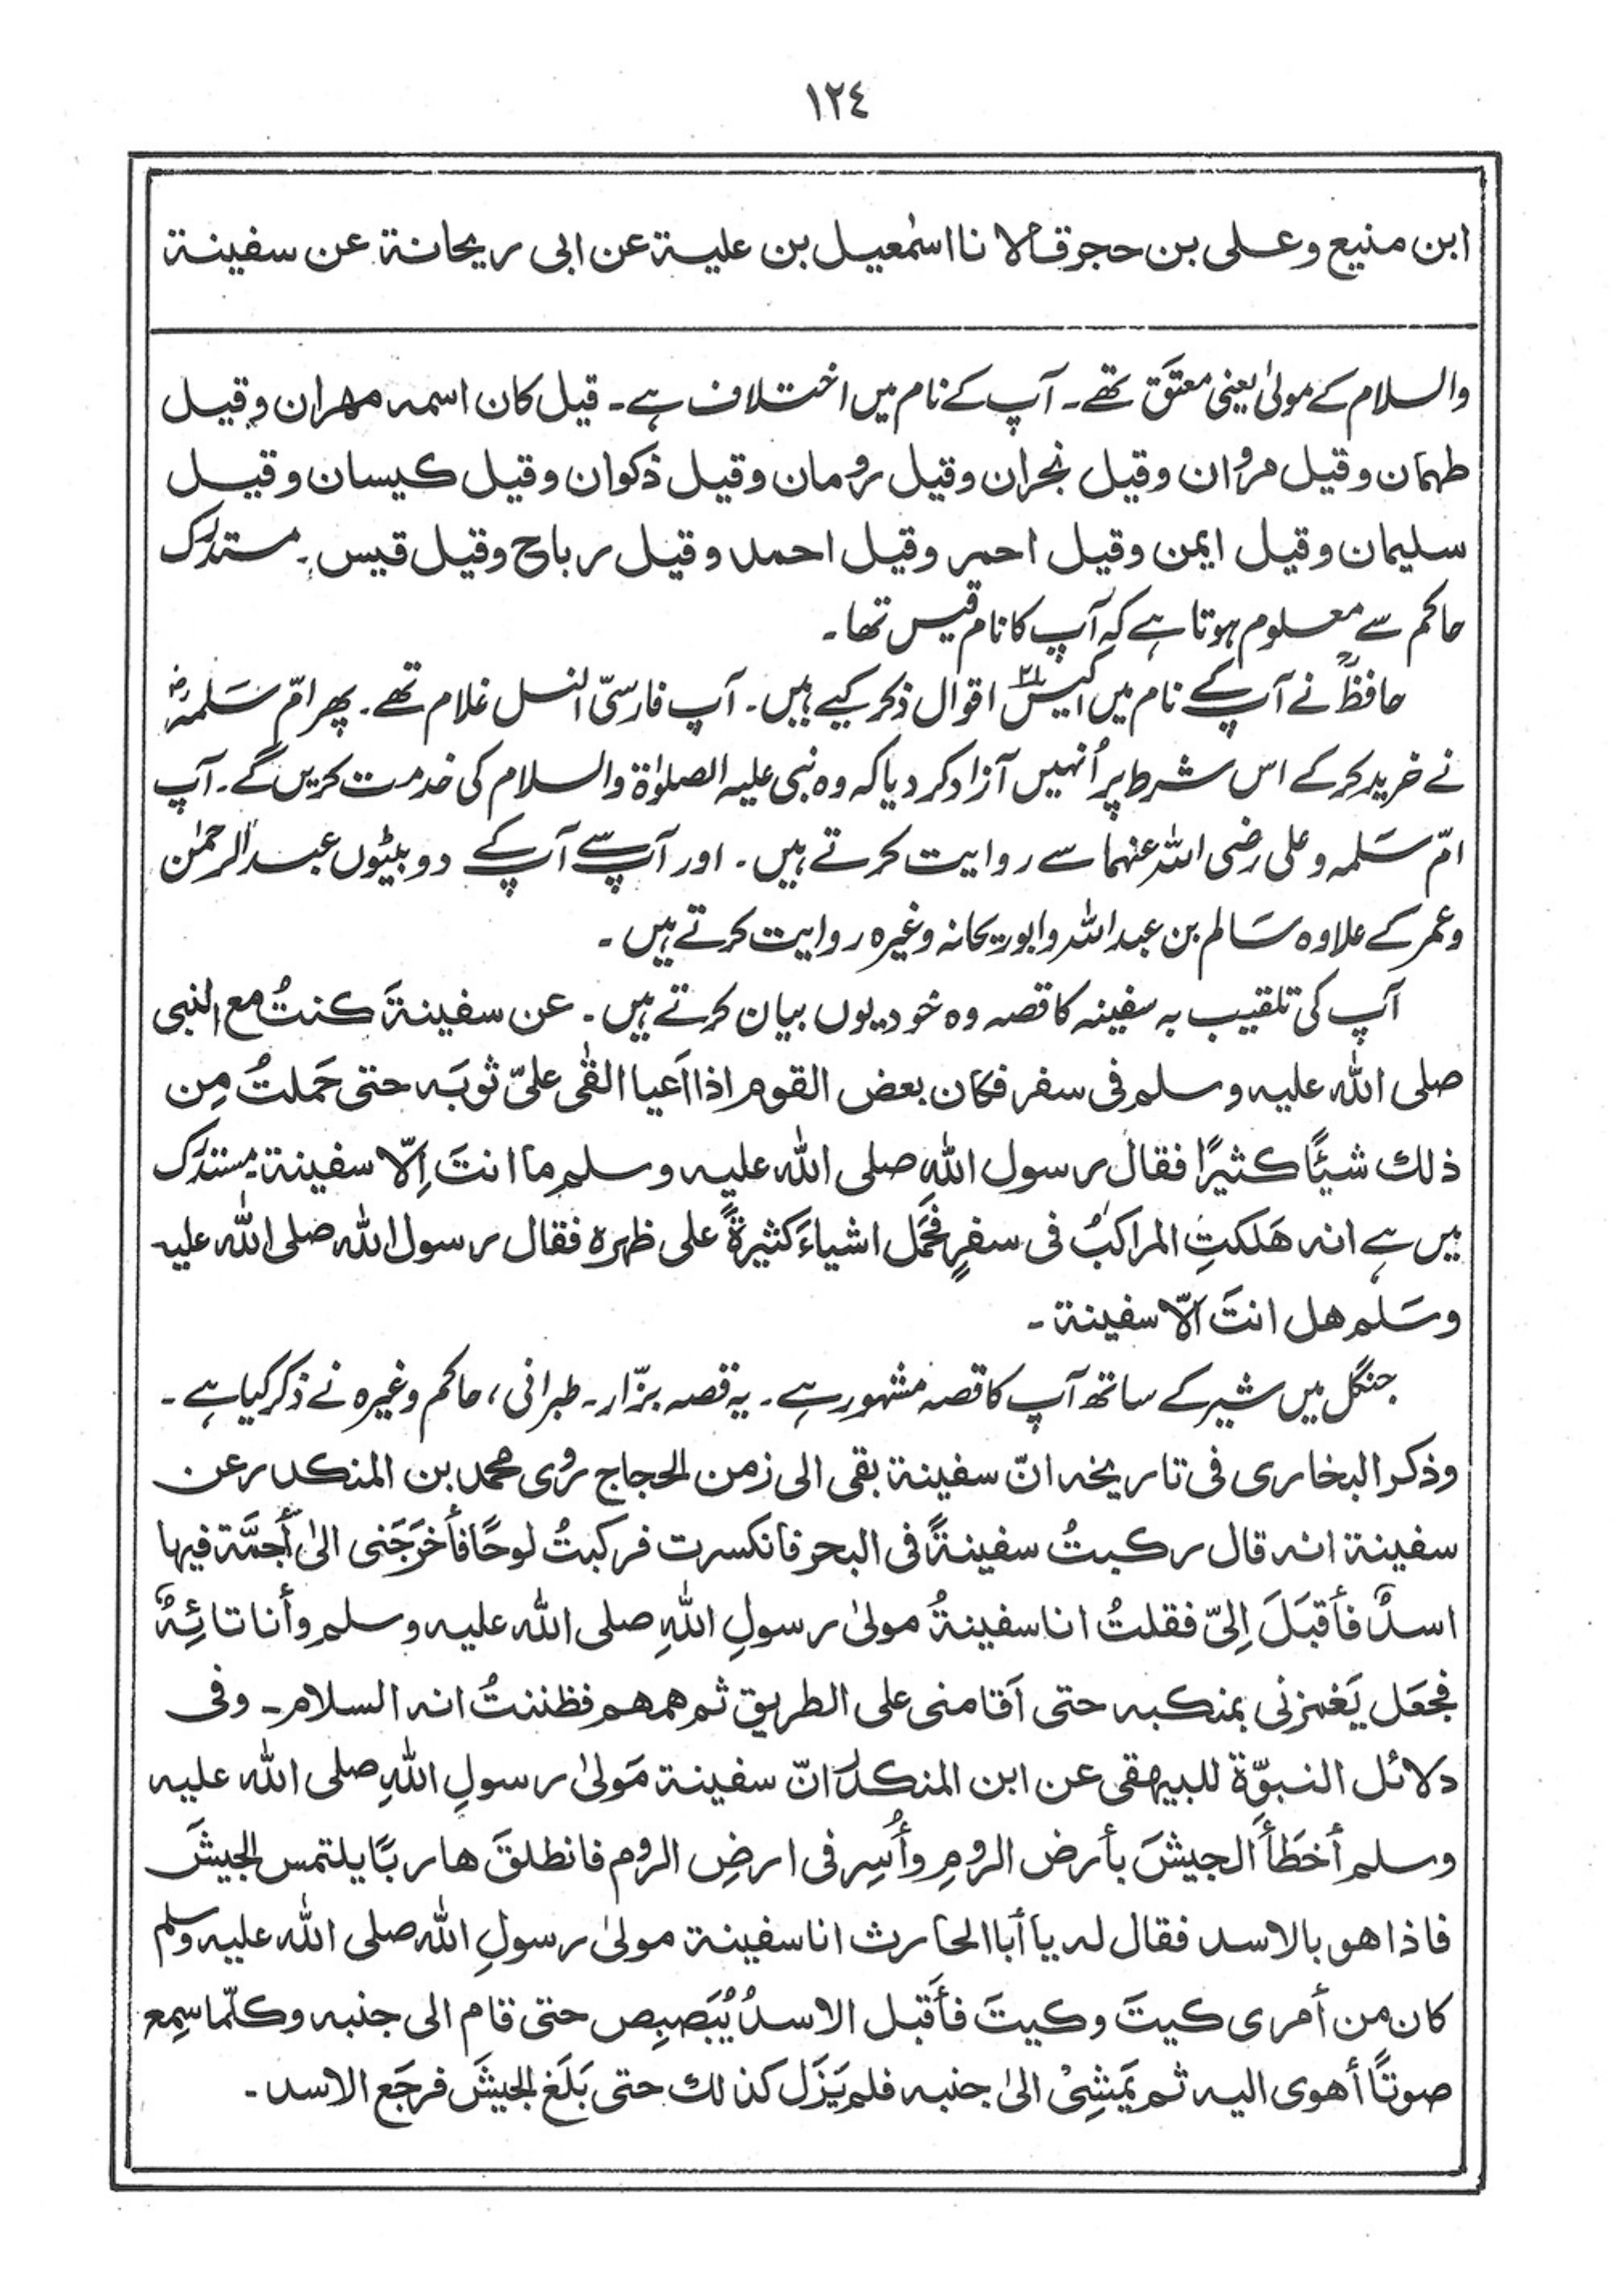 ١٢٤
ابن منيع وعلى بن حجر قالا نا اسمٰعيل بن علية عن ابى ريحانة عن سفينة
والسلام کے مولیٰ یعنی معتَق تھے۔ آپ کے نام میں اختلاف ہے۔ قيل كان اسمه مهران وقيل
طهمان وقيل مروان وقيل نجران وقيل رومان وقيل ذكوان وقيل كيسان وقيل
سليمان وقيل ايمن وقيل احمر وقيل احمد وقيل رباح وقيل قيس۔ مستدرک
حاکم سے معلوم ہوتا ہے کہ آپ کا نام قیس تھا۔
حافظؒ نے آپ کے نام میں اکیس۲۱ اقوال ذکر کیے ہیں۔ آپ فارسیّ النسل غلام تھے۔ پھر امّ سَلمہؓ
نے خرید کر کے اس شرط پر اُنہیں آزاد کر دیا کہ وہ نبی علیہ الصلوٰۃ والسلام کی خدمت کریں گے۔ آپ
امّ سَلمہ و علی رضی اللہ عنہما سے روایت کرتے ہیں۔ اور آپ سے آپ کے دو بیٹوں عبد الرحمٰن
و عمر کے علاوہ سَالم بن عبد اللہ و ابو ریحانہ وغیرہ روایت کرتے ہیں۔
آپ کی تلقیب بہ سفینہ کا قصہ وہ خود یوں بیان کرتے ہیں۔ عن سفينةَ كنتُ مع النبى
صلى الله عليه وسلم فى سفر فكان بعض القوم اذا اَعيا القٰى علىّ ثوبَه حتى حَملتُ مِن
ذلك شيئًا كثيرًا فقال رسول الله صلى الله عليه وسلم ما انتَ اِلّا سفينة۔ مستدرَک
میں ہے انه هَلكتِ المراكبُ فى سفرٍ فحَمَل اشياءَ كثيرةً على ظهره فقال رسول الله صلى الله عليه
وسَلم هل انتَ اِلّا سفينة۔
جنگل میں شیر کے ساتھ آپ کا قصہ مشہور ہے۔ یہ قصہ بزّار۔ طبرانی، حاکم وغیرہ نے ذکر کیا ہے۔
وذكر البخارى فى تاريخه انّ سفينة بقى الى زمن الحجاج روى محمد بن المنكدر عن
سفينة انه قال ركبتُ سفينةً فى البحر فانكسرت فركبتُ لوحًا فأخرَجَنى الىٰ أَجمَّة فيها
اسدٌ فأَقبَلَ اِلىّ فقلتُ انا سفينةُ مولىٰ رسولِ اللهِ صلى الله عليه وسلم وأنا تائِهٌ
فجعَل يَغمزنى بمنكبه حتى اَقامنى على الطريق ثم همهم فظننتُ انه السلام۔ وفى
دلائل النبوّة للبيهقى عن ابن المنكدر انّ سفينة مَولىٰ رسولِ اللهِ صلى الله عليه
وسلم أخطَأَ الجيشَ بأرض الرومِ وأُسِر فى ارضِ الروم فانطلقَ هاربًا يلتمس الجيشَ
فاذا هو بالاسد فقال له يا أبا الحارث انا سفينة مولىٰ رسولِ الله صلى الله عليه وسلم
كان من أمرى كيتَ وكيتَ فأَقبل الاسدُ يُبَصبِص حتى قام الى جنبه وكلّما سمِع
صوتًا أهوى اليه ثم يَمشِىْ الىٰ جنبه فلم يَزَل كذلك حتى بَلَغ الجيشَ فرجَع الاسد۔